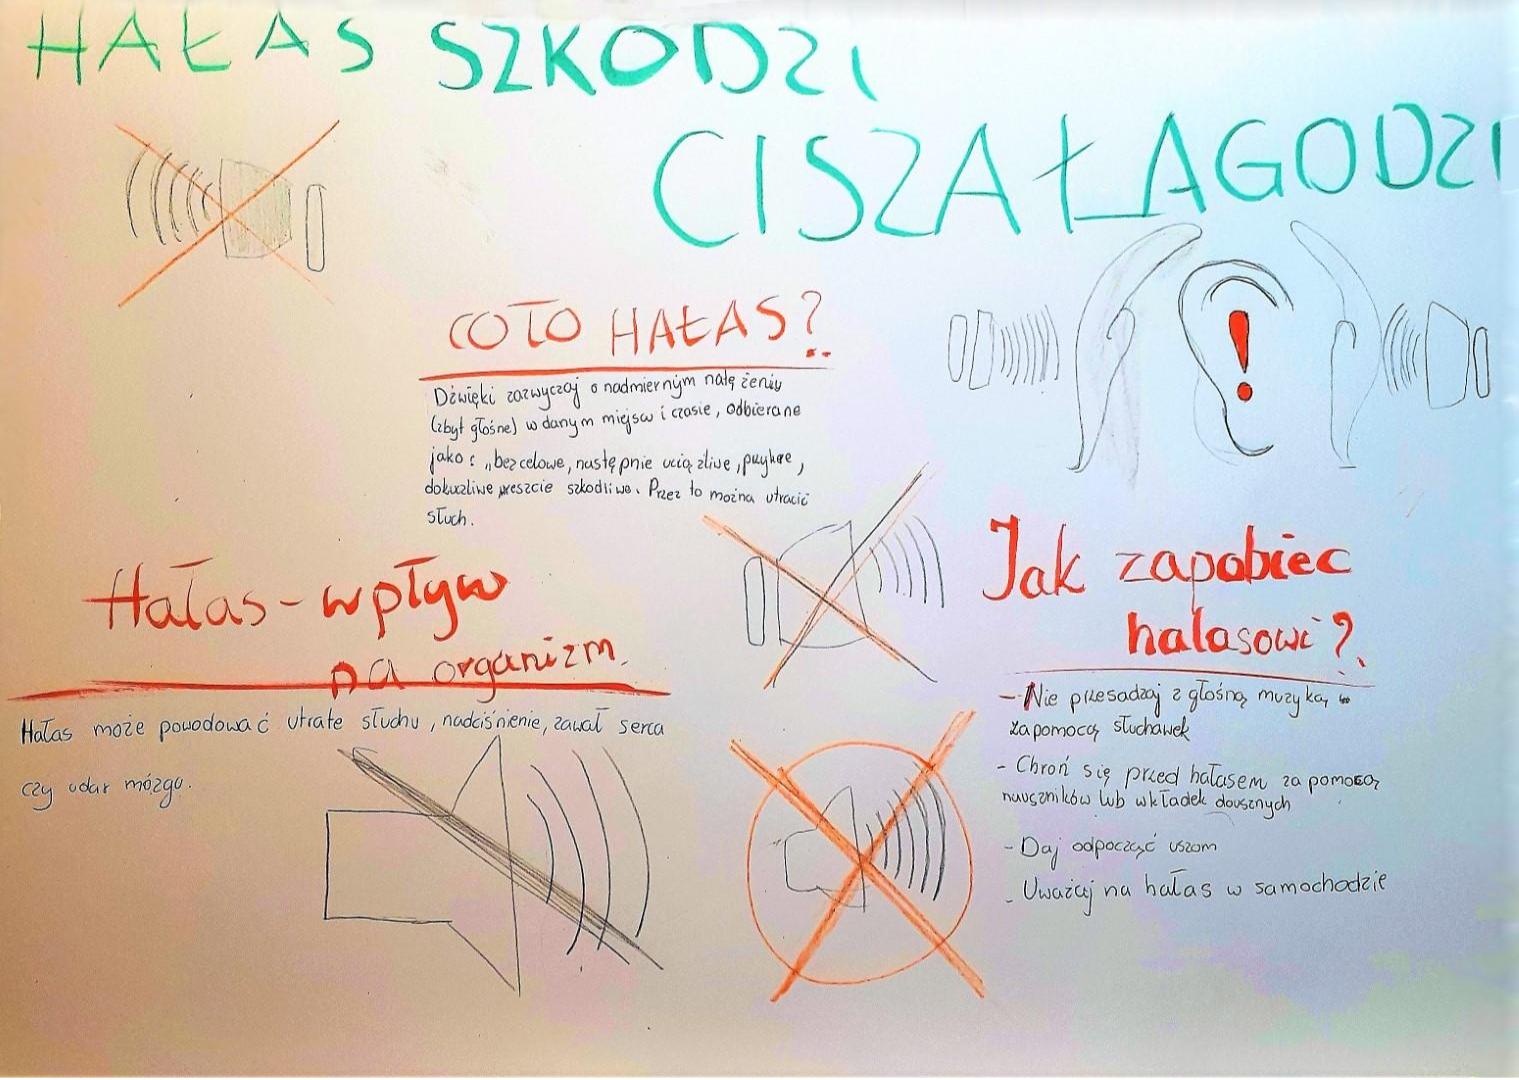 HAŁAS SZKODZI
CISZA ŁAGODZI
CO TO HAŁAS?
Dźwięki zazwyczaj o nadmiernym natężeniu
(zbyt głośne) w danym miejscu i czasie, odbierane
jako: „bezcelowe, następnie uciążliwe, przykre,
dokuczliwe wreszcie szkodliwe. Przez to można utracić
słuch.
Hałas - wpływ
na organizm.
Hałas może powodować utrate słuchu, nadciśnienie, zawał serca
czy udar mózgu.
Jak zapobiec
hałasowi?
- Nie przesadzaj z głośną muzyką
za pomocą słuchawek
- Chroń się przed hałasem za pomocą
nauszników lub wkładek dousznych
- Daj odpocząć uszom
- Uważaj na hałas w samochodzie